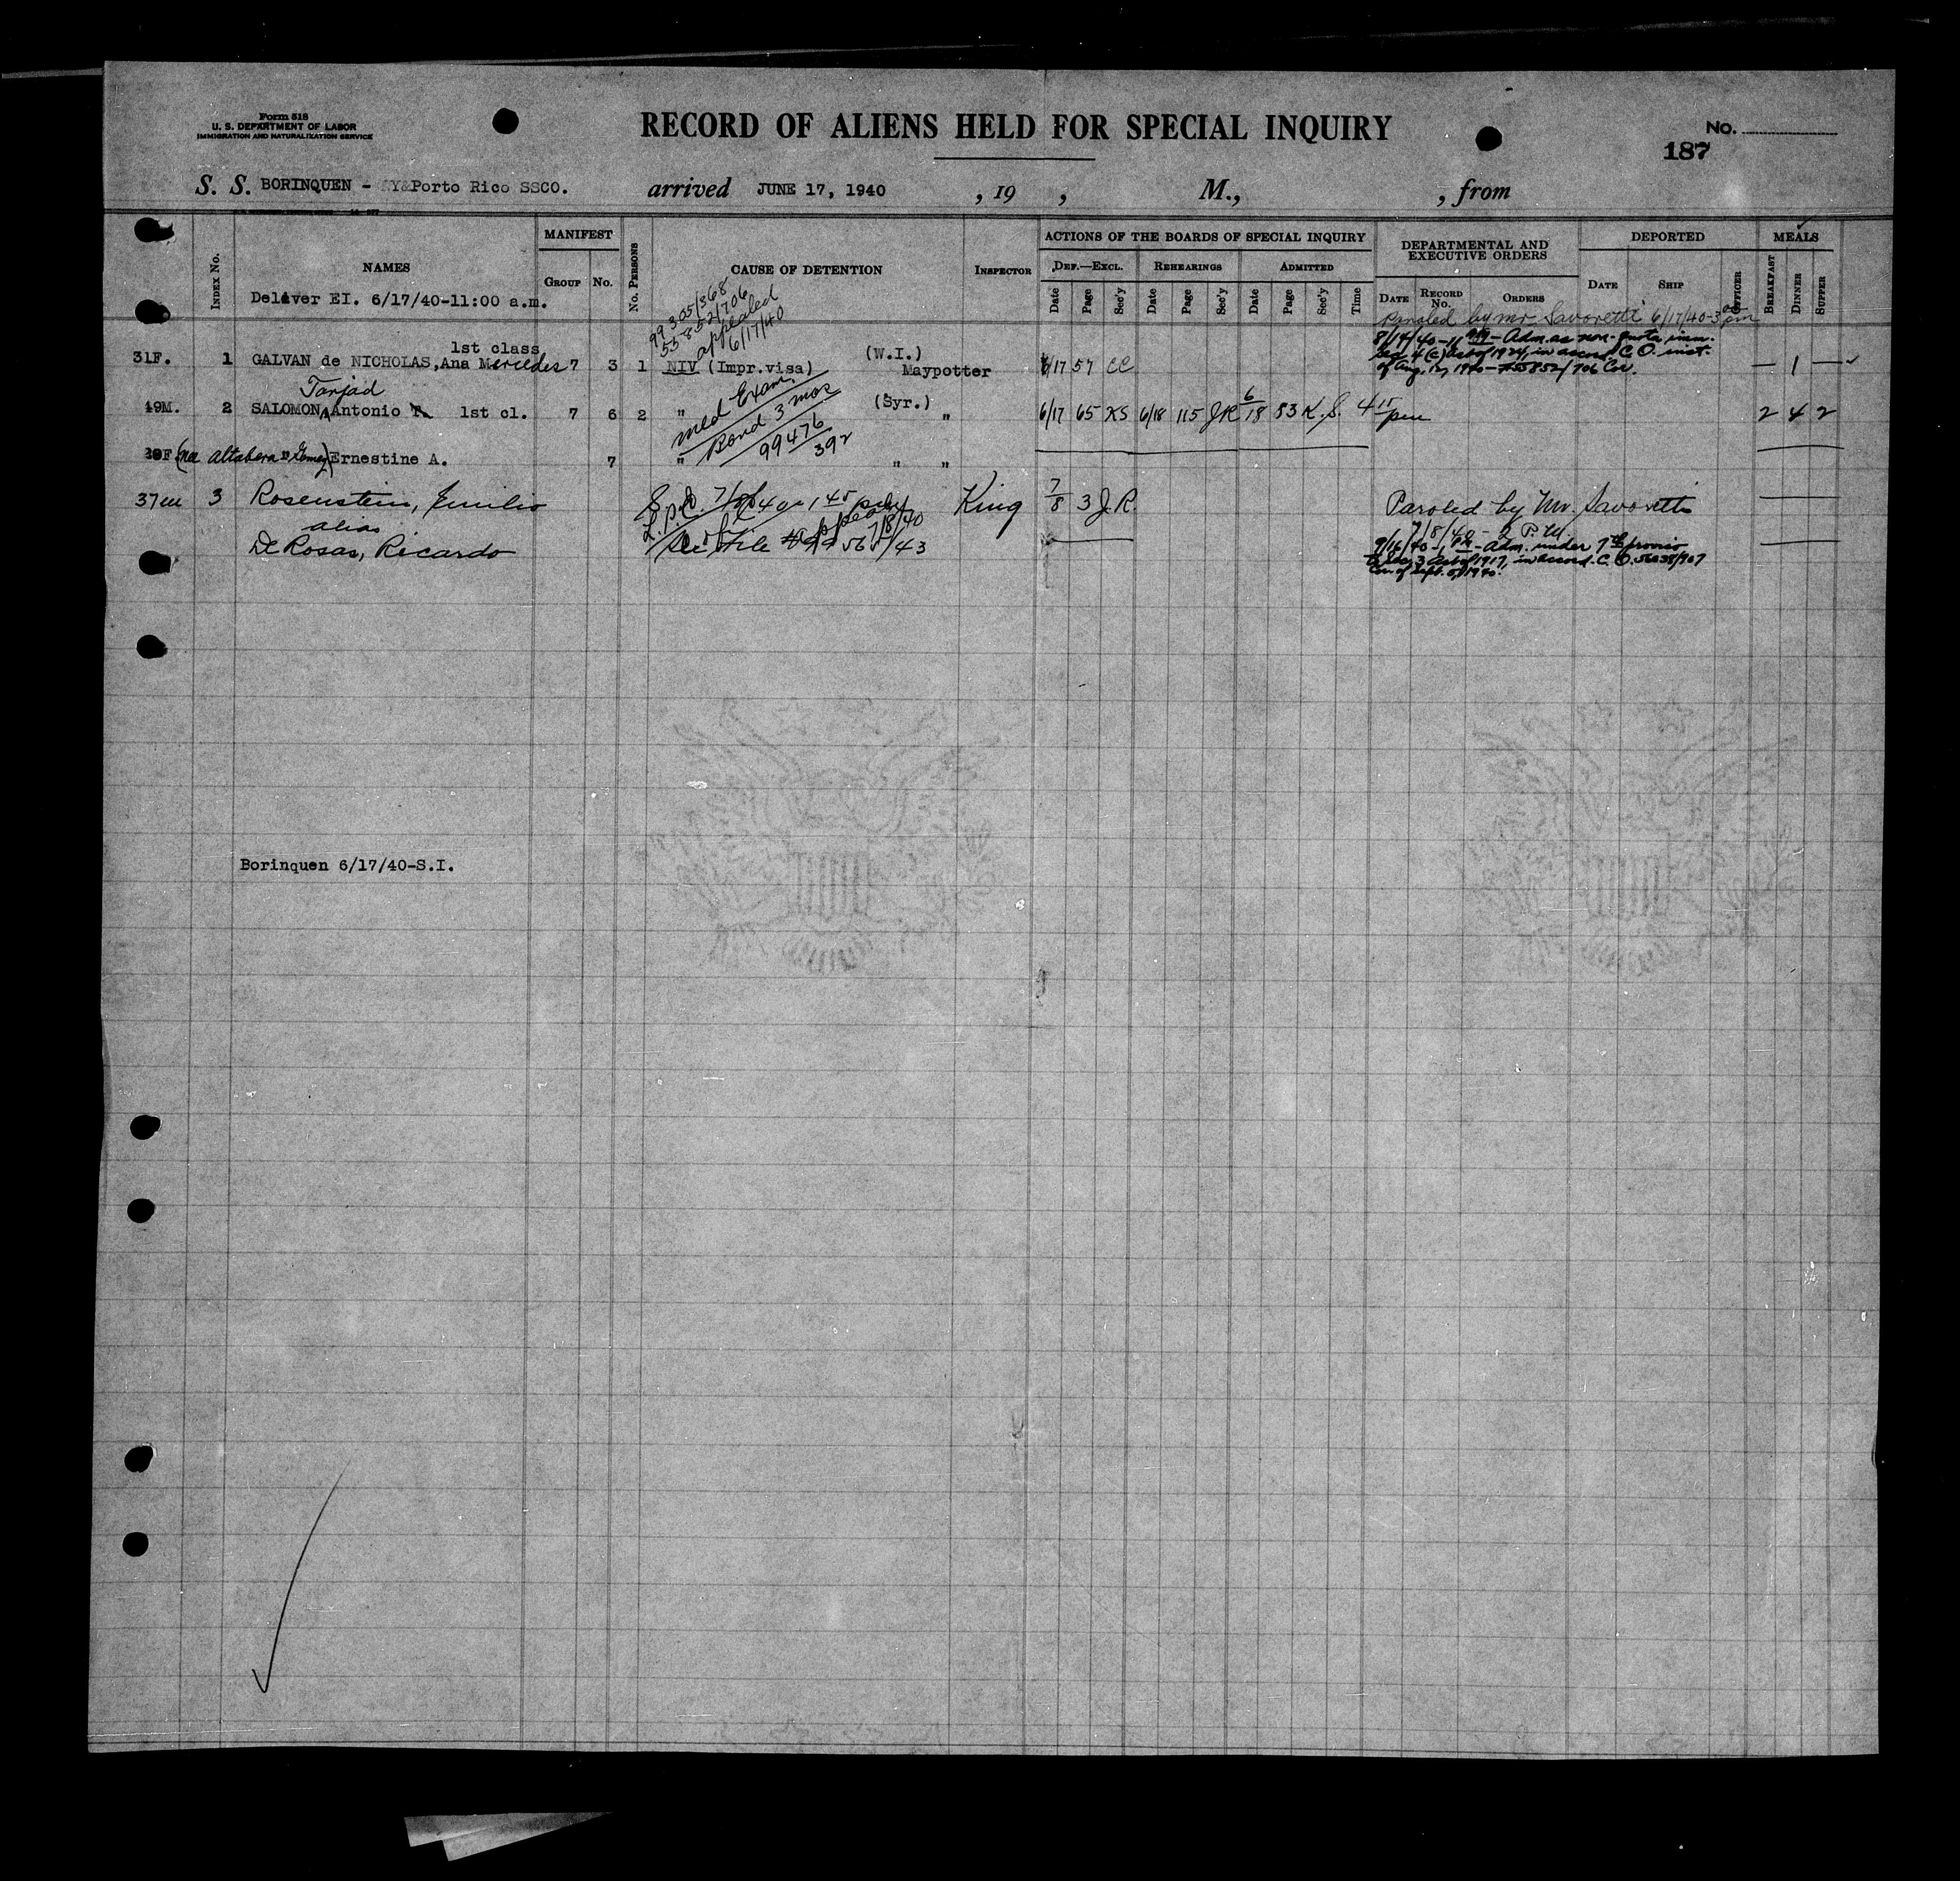 Form 518
U. S. DEPARTMENT OF LABOR
IMMIGRATION AND NATURALIZATION SERVICE
RECORD OF ALIENS HELD FOR SPECIAL INQUIRY
No.
187
S. S. BORINQUEN - NY&Porto Rico SSCO. arrived JUNE 17, 1940 , 19 , M., , from
INDEX No.
NAMES
Deliver EI. 6/17/40-11:00 a.m.
MANIFEST
GROUP No.
No. PERSONS
CAUSE OF DETENTION
INSPECTOR
ACTIONS OF THE BOARDS OF SPECIAL INQUIRY
DEF.—EXCL. REHEARINGS ADMITTED
Date Page Sec'y Date Page Sec'y Date Page Sec'y Time
DEPARTMENTAL AND EXECUTIVE ORDERS
DATE RECORD No. ORDERS
DEPORTED
DATE SHIP OFFICER
MEALS
BREAKFAST DINNER SUPPER
99305/368
55852/706
appealed
6/17/40
Paroled by Mr. Savoretti 6/17/40-3 pm
8/14/40-11 AM- Adm. as non-quota imm.
Sec 4 (c) Act of 1924, in accord C.O. inst.
of Aug. 1940- 55852/706 Con.
1st class
31F. 1 GALVAN de NICHOLAS, Ana Mercedes 7 3 1 NIV (Impr.visa) (W.I.) Maypotter 6/17 57 CC — 1 —
Tarjad
49M. 2 SALOMON, Antonio T. 1st cl. 7 6 2 " (Syr.) " 6/17 65 KS 6/18 115 JR 6/18 83 K.S. 4 15 pm 2 4 2
Med Exam.
Bond 3 mos
99476
392
(nee Altabera Gomez) Ernestine A. 7 " " "
37m 3 Rosenstein, Emilio King 7/8 3 J.R. Paroled by Mr. Savoretti
alias
7/8/40 - 2 P.M.
De Rosas, Ricardo
appealed 7/8/40
9/16/40-1 PM- Adm. under 7th proviso
to Sec. 3 Act of 1917, in accord. C.O. 56038/907
Con. of Sept. 5, 1940.
Borinquen 6/17/40-S.I.